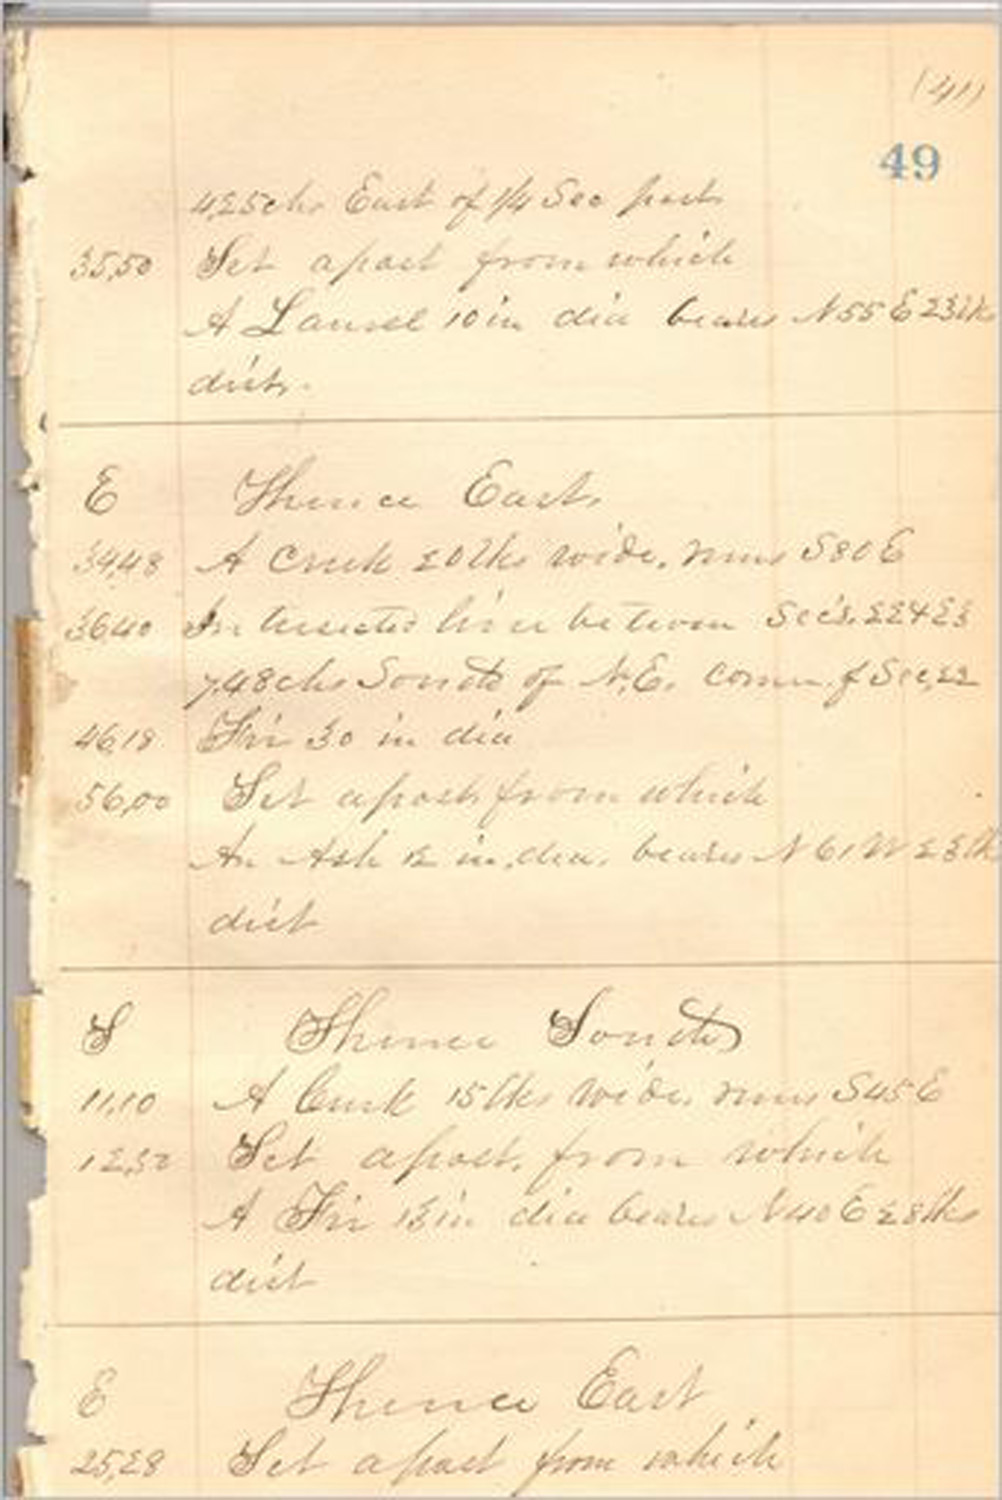 (41)
49
4,25 chs East of 1/4 Sec post
35,50 Set a post from which
A Laurel 10 in dia bears N 55 E 23 lks
dist.
E Thence East,
34,48 A Creek 20 lks wide, runs S 80 E
36,40 Intersected line between Sec's. 22 & 23
7,48 chs South of N.E. corn. of Sec, 22
46,18 Fir 30 in dia
56,00 Set a post from which
An Ash 12 in, dia, bears N 61 W 23 lks
dist
S Thence South
11,10 A Creek 15 lks wide, runs S 45 E
12,50 Set a post, from which
A Fir 13 in dia bears N 40 E 28 lks
dist
E Thence East
25,28 Set a post from which